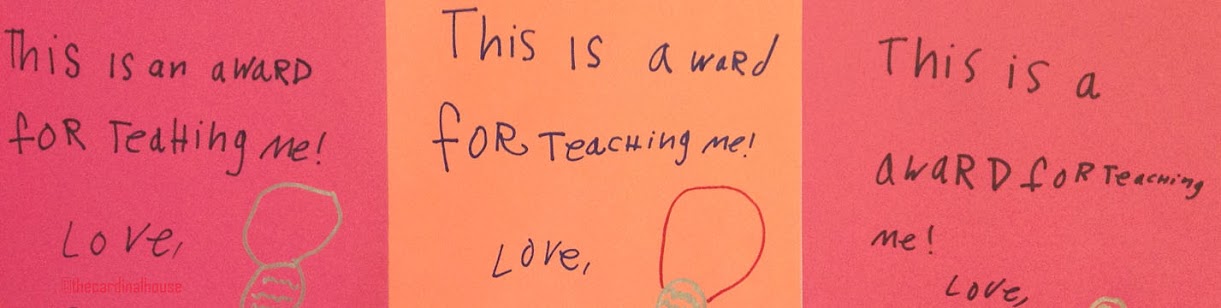 This is an award
for Teahing me!
Love,
©thecardinalhouse
This is a ward
for Teaching me!
Love,
This is a
award for Teaching
me!
Love,